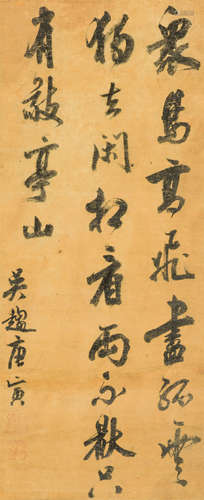 眾鳥高飛盡孤雲
獨去閑相看兩不厭只
有敬亭山
吳趨唐寅